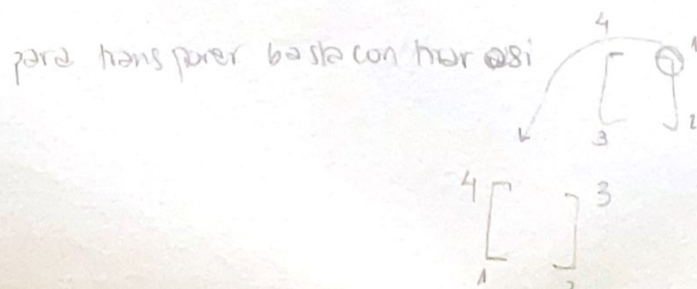 para transponer basta con tirar asi
4
1
3
2
4
3
1
2